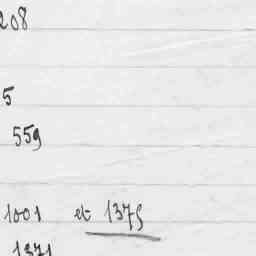 208
5
559
1001 et 1375
1371